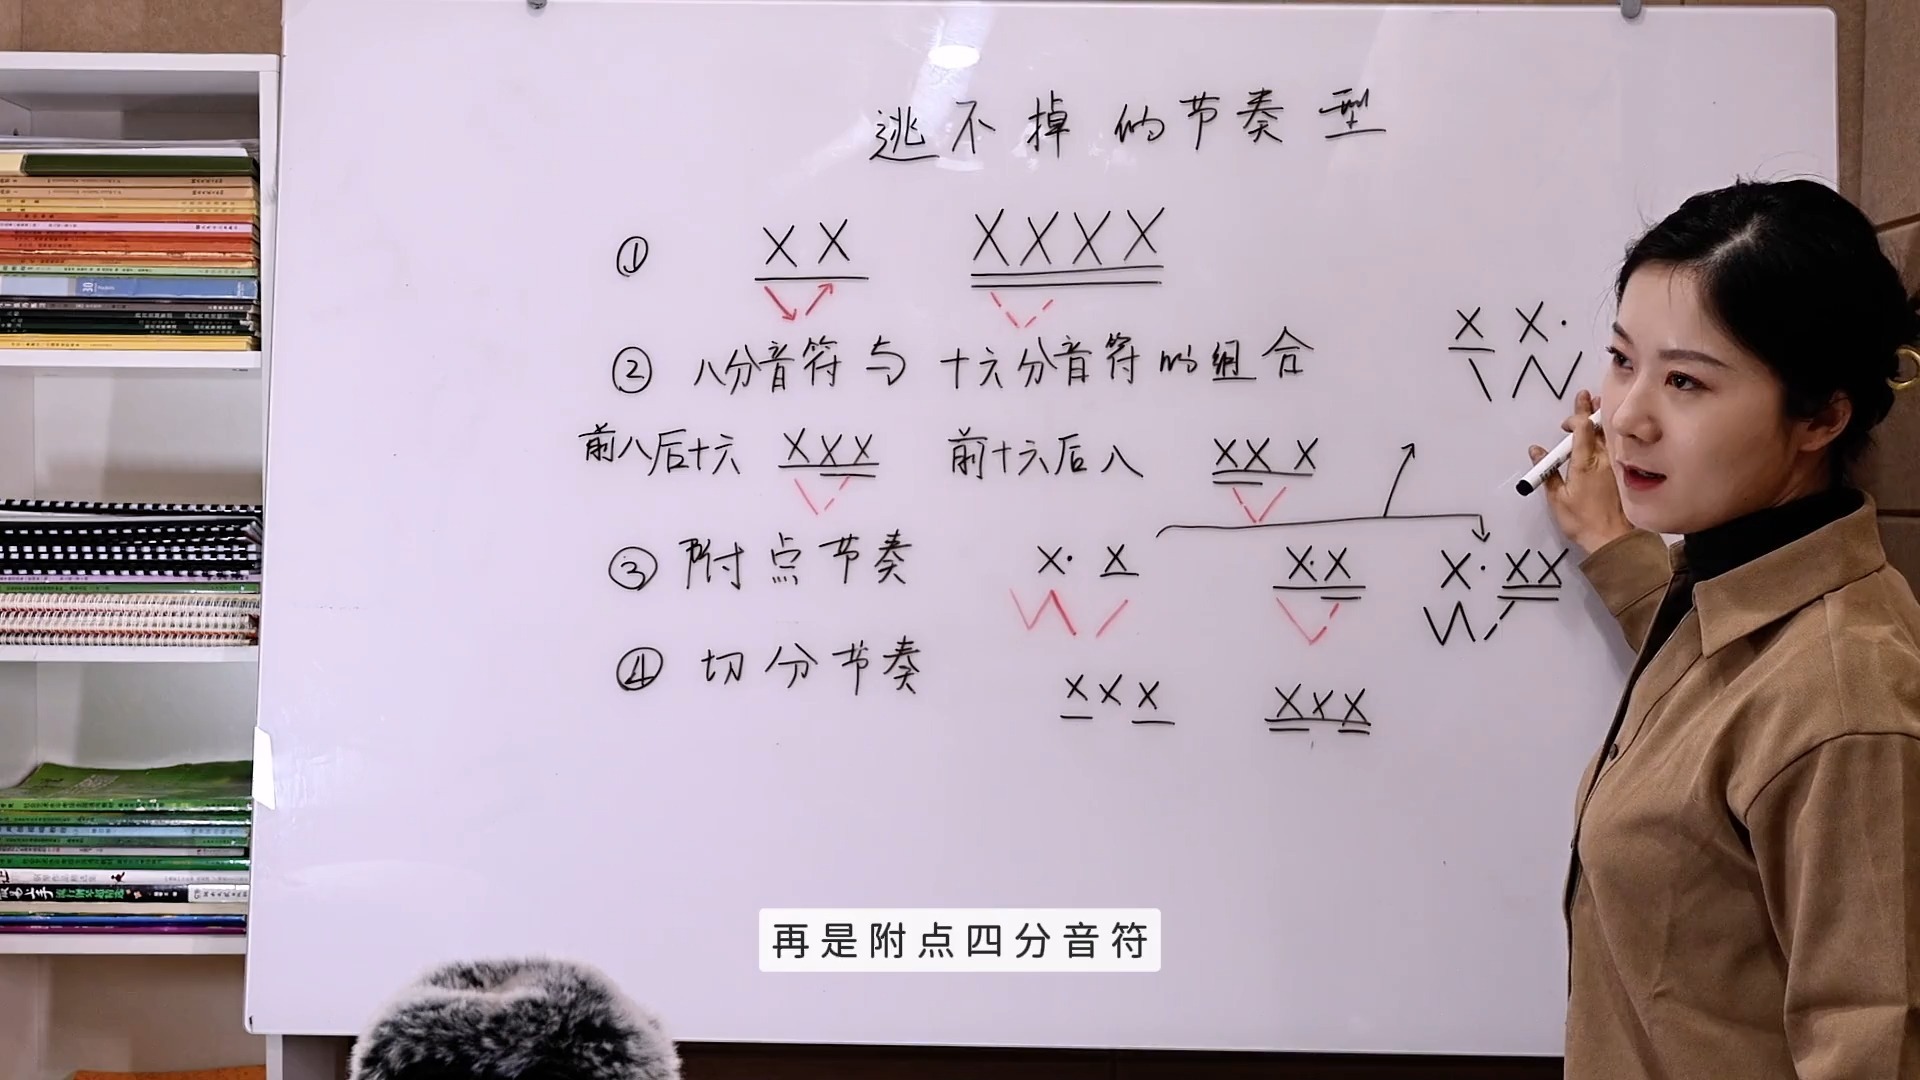 逃不掉的节奏型
① X X X X X X
② 八分音符与十六分音符的组合
X X·
前八后十六 X X X 前十六后八 X X X
③ 附点节奏 X· X X· X X· X X
④ 切分节奏 X X X X X X
再是附点四分音符